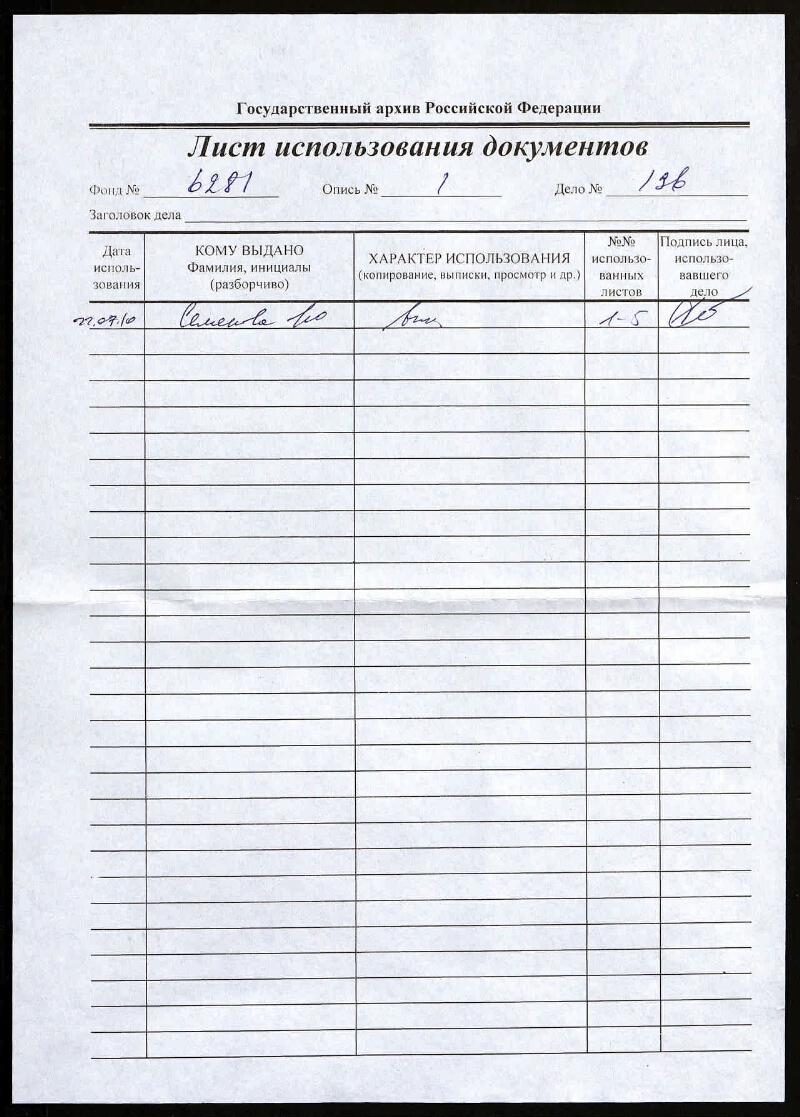 Государственный архив Российской Федерации
Лист использования документов
Фонд № 6281 Опись № 1 Дело № 136
Заголовок дела
Дата исполь- зования
КОМУ ВЫДАНО
Фамилия, инициалы
(разборчиво)
ХАРАКТЕР ИСПОЛЬЗОВАНИЯ
(копирование, выписки, просмотр и др.)
№№
использо-
ванных
листов
Подпись лица,
использо-
вавшего
дело
22.07.10 Семенова 1-5